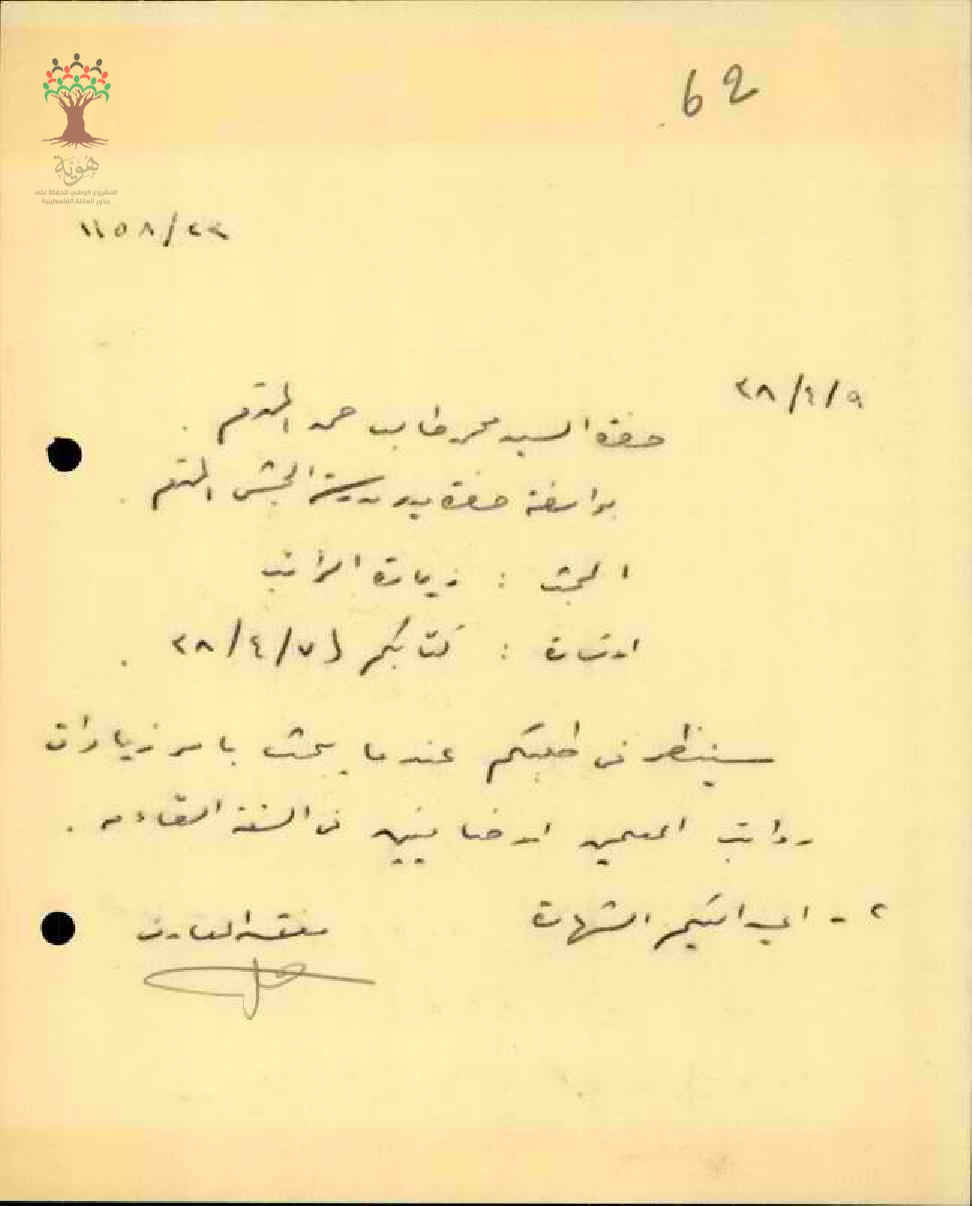 62
هوية
المشروع الوطني للحفاظ على
جذور العائلة الفلسطينية
١١٥٨/٢٣
٣٨/٤/٩
حضرة السيد محمد طالب حمد المحترم .
بواسطة حضرة مدير مدرسة الجش المحترم .
البحث : زيادة الراتب
اشارة : كتابكم ٣٨/٤/٧ .
سينظر في طلبكم عندما يبحث بامر زيادات
رواتب المعلمين الاضافيين في السنة القادمة .
٢ - اعيد اليكم الشهادة
مفتش المعارف